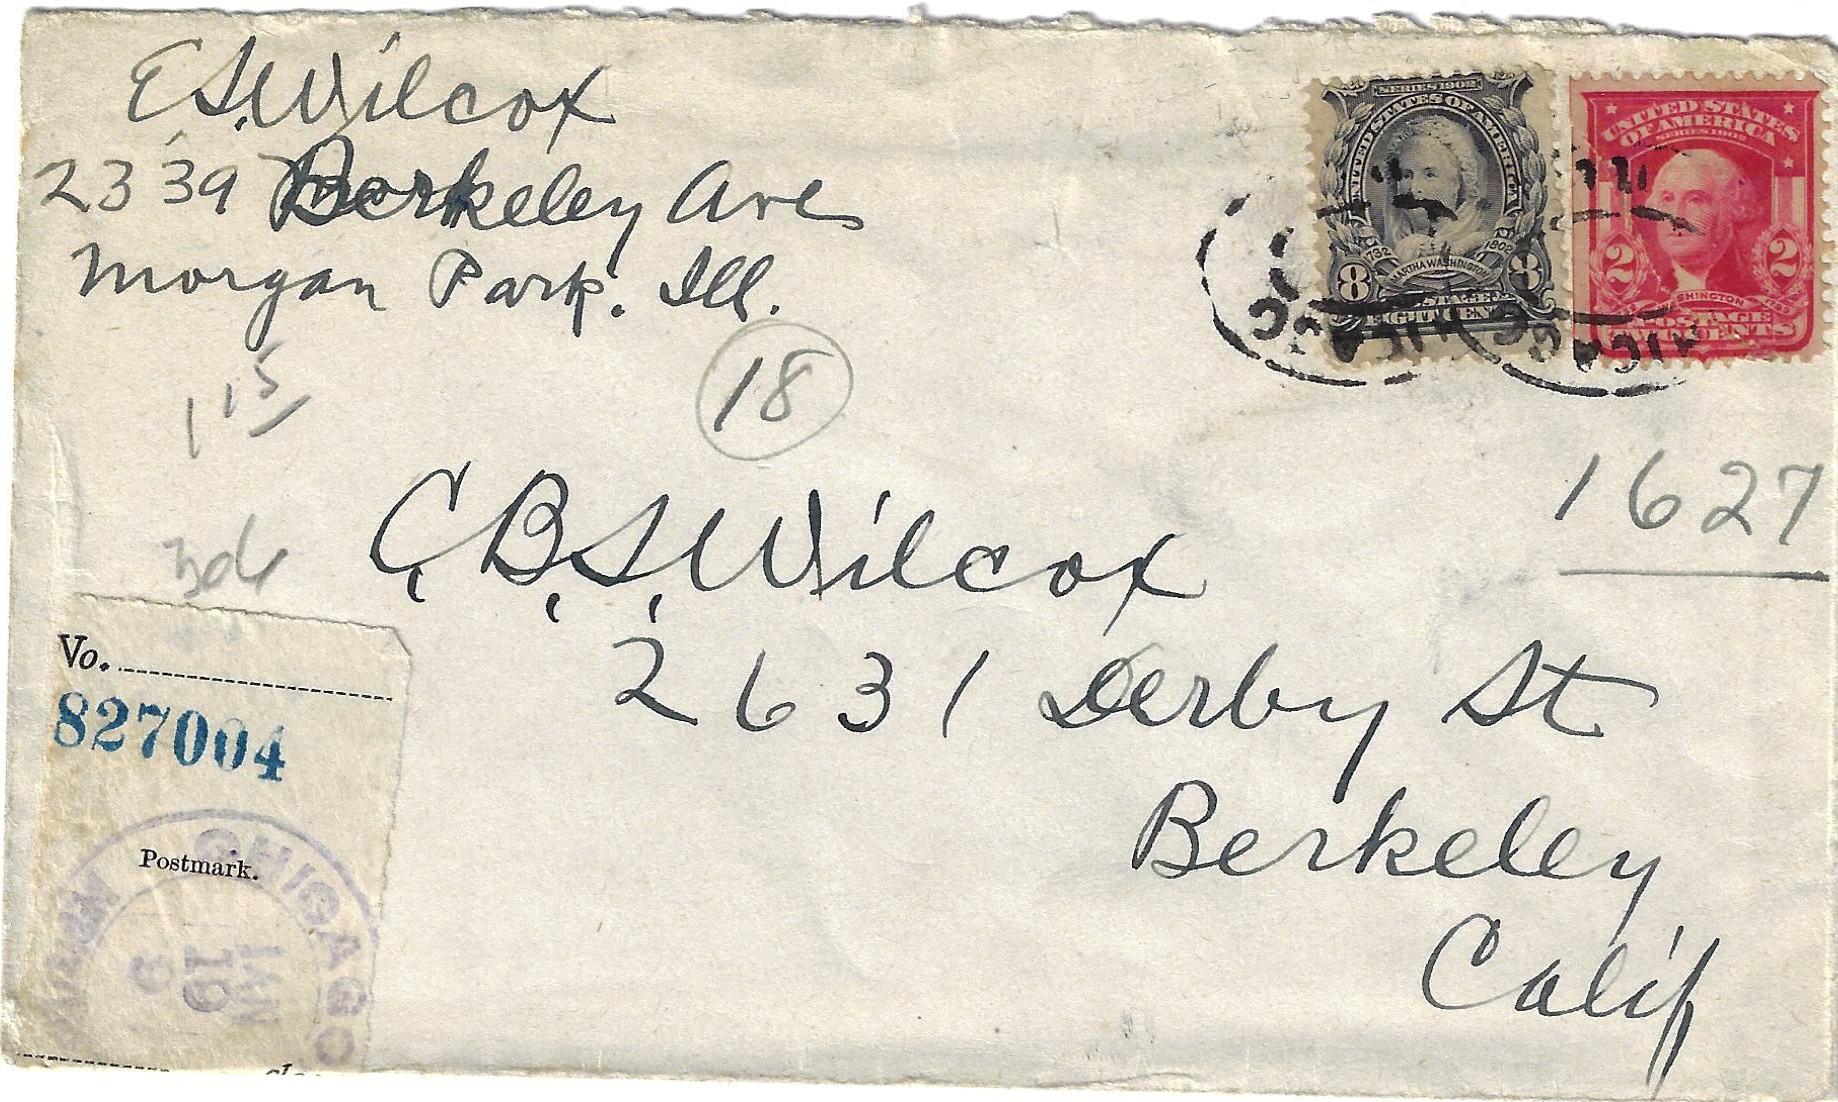 E. S. Wilcox
2339 Berkeley Ave
Morgan Park. Ill.
SERIES 1902
UNITED STATES OF AMERICA
1732 1802
MARTHA WASHINGTON
8 8
POSTAGE
EIGHT CENTS
UNITED STATES
OF AMERICA
SERIES 1902
2 2
WASHINGTON
POSTAGE
TWO CENTS
CHICAGO
CHICAGO
115
18
1627
C. B. S. Wilcox
2631 Derby St
Berkeley
Calif
Vo.
827004
Postmark.
CHICAGO
JAN
19